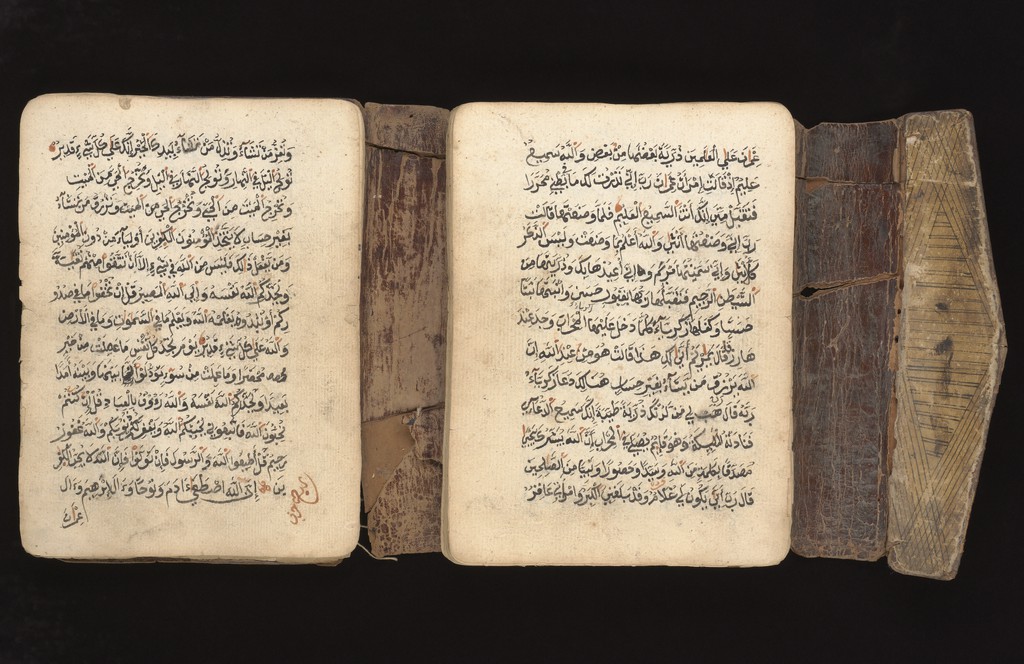 وَتُعِزُّ مَن تَشَآءُ وَتُذِلُّ مَن تَشَآءُ بِيَدِكَ الْخَيْرُ إِنَّكَ عَلَى كُلِّ شَيْءٍ قَدِيرٌ
تُولِجُ اليْلَ فِي النَّهَارِ وَتُولِجُ النَّهَارَ فِي اليْلِ وَتُخْرِجُ الْحَيَّ مِنَ الْمَيِّتِ
وَتُخْرِجُ الْمَيِّتَ مِنَ الْحَيِّ وَتُخْرِجُ الْحَيَّ مِنَ الْمَيِّتِ وَتَرْزُقُ مَن تَشَآءُ
بِغَيْرِ حِسَابٍ لَا يَتَّخِذِ الْمُؤْمِنُونَ الْكٰفِرِينَ أَوْلِيَآءَ مِن دُونِ الْمُؤْمِنِينَ
وَمَن يَفْعَلْ ذٰلِكَ فَلَيْسَ مِنَ اللهِ فِي شَيْءٍ إِلَّا أَن تَتَّقُوا مِنْهُمْ تُقَىٰةً
وَيُحَذِّرُكُمُ اللهُ نَفْسَهُ وَإِلَى اللهِ الْمَصِيرُ قُلْ إِن تُخْفُوا مَا فِي صُدُو
رِكُمْ أَوْ تُبْدُوهُ يَعْلَمْهُ اللهُ وَيَعْلَمُ مَا فِي السَّمٰوٰتِ وَمَا فِي الْأَرْضِ
وَاللهُ عَلَى كُلِّ شَيْءٍ قَدِيرٌ يَوْمَ تَجِدُ كُلُّ نَفْسٍ مَا عَمِلَتْ مِنْ خَيْرٍ
مُحْضَرًا وَمَا عَمِلَتْ مِن سُوءٍ تَوَدُّ لَوْ أَنَّ بَيْنَهَا وَبَيْنَهُ أَمَدًا
بَعِيدًا وَيُحَذِّرُكُمُ اللهُ نَفْسَهُ وَاللهُ رَؤُوفٌ بِالْعِبَادِ قُلْ إِن كُنتُمْ
تُحِبُّونَ اللهَ فَاتَّبِعُونِي يُحْبِبْكُمُ اللهُ وَيَغْفِرْ لَكُمْ ذُنُوبَكُمْ وَاللهُ غَفُورٌ
رَحِيمٌ قُلْ أَطِيعُوا اللهَ وَالرَّسُولَ فَإِن تَوَلَّوْا فَإِنَّ اللهَ لَا يُحِبُّ الْكٰفِرِ
ينَ إِنَّ اللهَ اصْطَفَى ءَادَمَ وَنُوحًا وَءَالَ إِبْرٰهِيمَ وَءَالَ
عِمْرَانَ
عِمْرَانَ عَلَى الْعٰلَمِينَ ذُرِّيَّةً بَعْضُهَا مِنْ بَعْضٍ وَاللهُ سَمِيعٌ
عَلِيمٌ إِذْ قَالَتِ امْرَأَتُ عِمْرَانَ رَبِّ إِنِّي نَذَرْتُ لَكَ مَا فِي بَطْنِي مُحَرَّرًا
فَتَقَبَّلْ مِنِّي إِنَّكَ أَنتَ السَّمِيعُ الْعَلِيمُ فَلَمَّا وَضَعَتْهَا قَالَتْ
رَبِّ إِنِّي وَضَعْتُهَا أُنثَى وَاللهُ أَعْلَمُ بِمَا وَضَعَتْ وَلَيْسَ الذَّكَرُ
كَالْأُنثَى وَإِنِّي سَمَّيْتُهَا مَرْيَمَ وَإِنِّي أُعِيذُهَا بِكَ وَذُرِّيَّتَهَا مِنَ
الشَّيْطٰنِ الرَّجِيمِ فَتَقَبَّلَهَا رَبُّهَا بِقَبُولٍ حَسَنٍ وَأَنبَتَهَا نَبَاتًا
حَسَنًا وَكَفَّلَهَا زَكَرِيَّآءُ كُلَّمَا دَخَلَ عَلَيْهَا الْمِحْرَابَ وَجَدَ عِندَ
هَا رِزْقًا قَالَ يٰمَرْيَمُ أَنَّى لَكِ هٰذَا قَالَتْ هُوَ مِنْ عِندِ اللهِ إِنَّ
اللهَ يَرْزُقُ مَن يَشَآءُ بِغَيْرِ حِسَابٍ هُنَالِكَ دَعَا زَكَرِيَّآءُ
رَبَّهُ قَالَ رَبِّ هَبْ لِي مِن لَدُنكَ ذُرِّيَّةً طَيِّبَةً إِنَّكَ سَمِيعُ الدُّعَآءِ
فَنَادَتْهُ الْمَلٰئِكَةُ وَهُوَ قَائِمٌ يُصَلِّي فِي الْمِحْرَابِ أَنَّ اللهَ يُبَشِّرُكَ بِيَحْيَى
مُصَدِّقًا بِكَلِمَةٍ مِنَ اللهِ وَسَيِّدًا وَحَصُورًا وَنَبِيًّا مِنَ الصّٰلِحِينَ
قَالَ رَبِّ أَنَّى يَكُونُ لِي غُلٰمٌ وَقَدْ بَلَغَنِيَ الْكِبَرُ وَامْرَأَتِي عَاقِرٌ